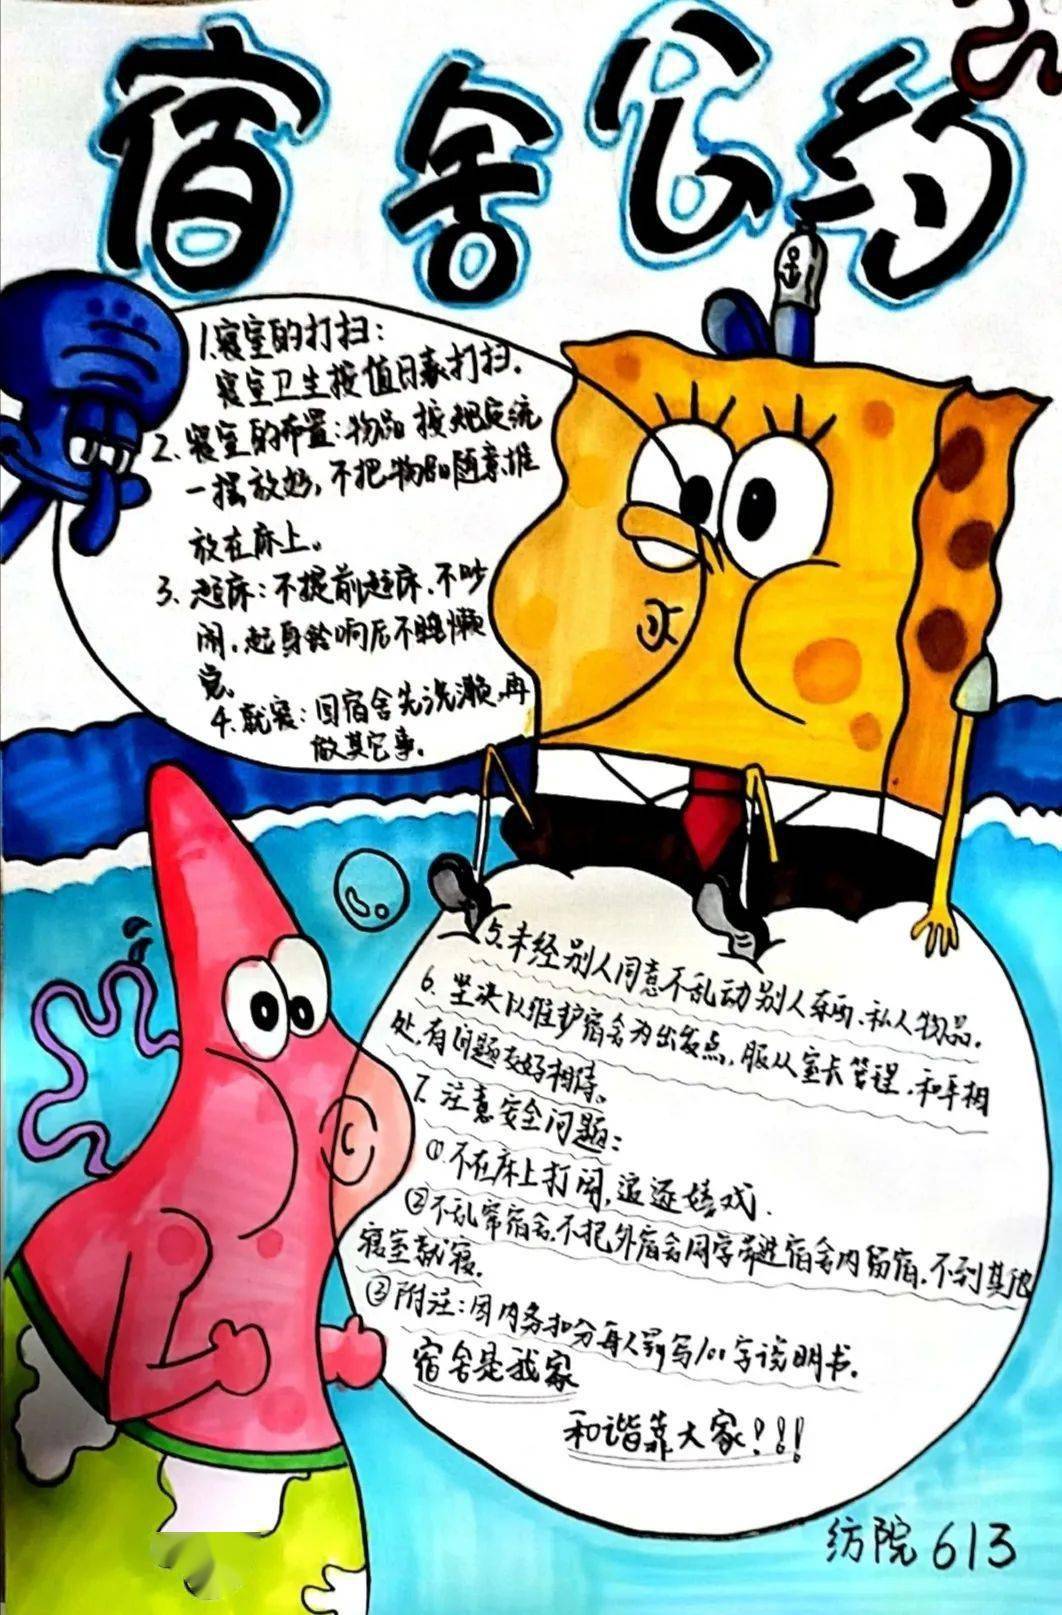 宿舍公约
1.寝室的打扫:
寝室卫生按值日表打扫.
2.寝室的布置:物品按规定统
一摆放好,不把物品随意堆
放在床上。
3.起床:不提前起床.不吵
闹,起身铃响后不睡懒
觉.
4.就寝:回宿舍先洗漱,再
做其它事。
5.未经别人同意不乱动别人东西、私人物品.
6.坚决以维护宿舍为出发点,服从室长管理,和平相
处,有问题友好相待。
7.注意安全问题:
①不在床上打闹,追逐嬉戏.
②不乱窜宿舍,不把外宿舍同学带进宿舍内留宿,不到其他
寝室就寝.
③附注:因内务扣分每人罚写100字说明书.
宿舍是我家
和谐靠大家!!!
纺院613